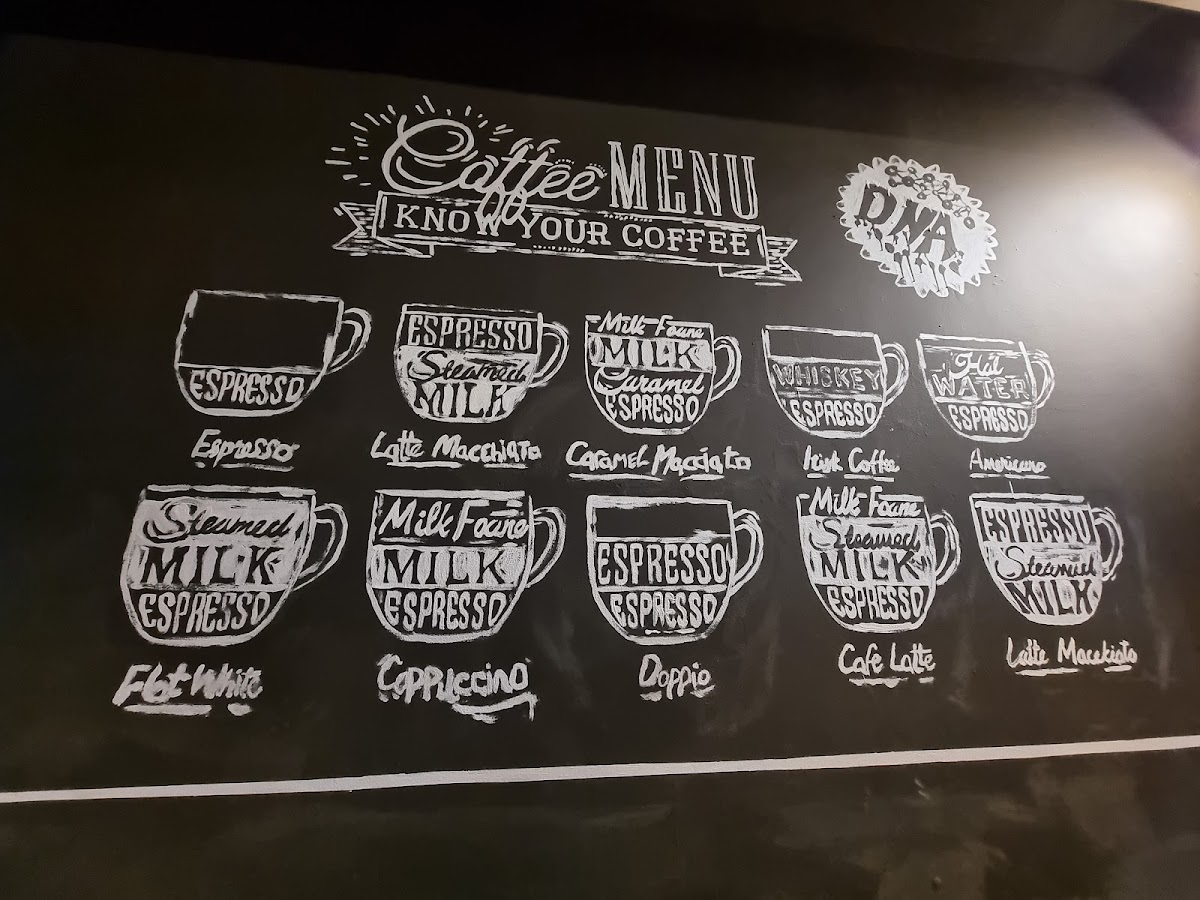 Coffee MENU
KNOW YOUR COFFEE
DNA
ESPRESSO
Espresso
ESPRESSO
Steamed
MILK
Latte Macchiato
Milk Foame
MILK
Caramel
ESPRESSO
Caramel Macciato
WHISKEY
ESPRESSO
Irish Coffee
Hot
WATER
ESPRESSO
Americano
Steamed
MILK
ESPRESSO
Flat White
Milk Foame
MILK
ESPRESSO
Cappuccino
ESPRESSO
ESPRESSO
Doppio
Milk Foame
Steamed
MILK
ESPRESSO
Cafe Latte
ESPRESSO
Steamed
MILK
Latte Macckiato